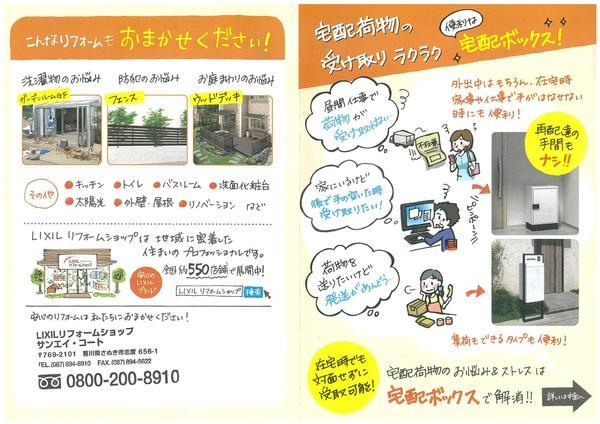 こんなリフォームも おまかせください!
洗濯物のお悩み
ガーデンルームGF
防犯のお悩み
フェンス
お庭まわりのお悩み
ウッドデッキ
その他
●キッチン ●トイレ ●バスルーム ●洗面化粧台
●太陽光 ●外壁・屋根 ●リノベーション など
LIXILリフォームショップは 地域に密着した
住まいの プロフェッショナルです。
全国約550店舗で展開中!
LIXIL
リフォームショップ
安心の
LIXIL
ブランド
LIXIL リフォームショップ 検索
安心のリフォームは 私たちにおまかせください!
LIXILリフォームショップ
サンエイ・コート
〒769-2101 香川県さぬき市志度 656-1
TEL.(087)894-8910 FAX.(087)894-5622
0800-200-8910
宅配荷物の
受け取り ラクラク
便利な
宅配ボックス!
昼間仕事で
荷物が
受け取れない
不在票
外出中はもちろん、在宅時
家事や仕事で手がはなせない
時にも 便利!
再配達の
手間も
ナシ!!
家にいるけど
後で手の空いた時
受け取りたい!
ピンポーン
荷物を
送りたいけど
発送がめんどう…
集荷もできるタイプも便利!
在宅時でも
対面せずに
受取可能!
宅配荷物の お悩み&ストレスは
宅配ボックスで解消!!